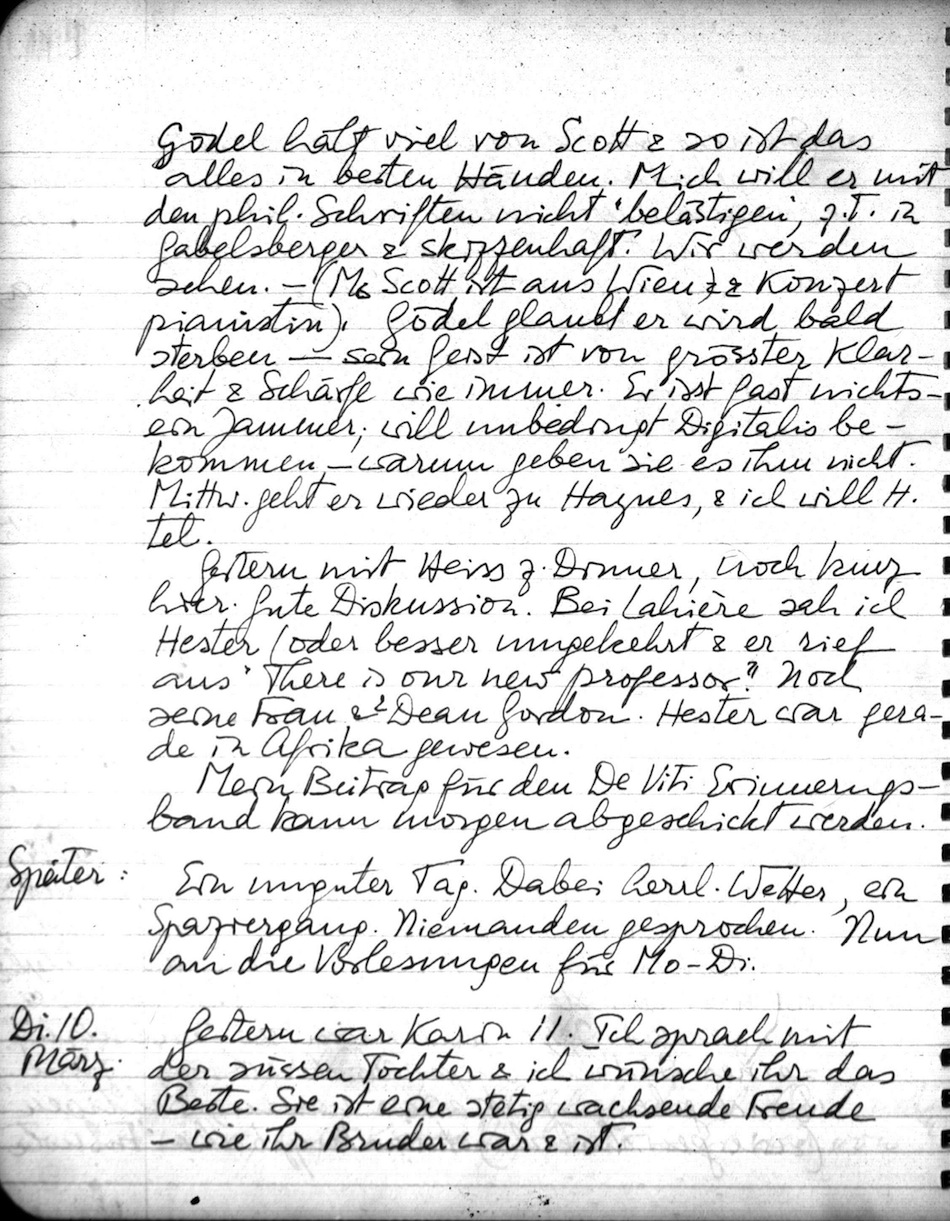 Gödel hält viel von Scott & so ist das
alles in besten Händen. Mich will er mit
den phil. Schriften nicht 'belästigen', z.T. in
Gabelsberger & skizzenhaft. Wir werden
sehen. – (Ms Scott ist aus Wien & Konzert
pianistin). Gödel glaubt er wird bald
sterben – sein Geist ist von grösster Klar-
heit & Schärfe wie immer. Er isst fast nichts –
ein Jammer; will unbedingt Digitalis be-
kommen, – warum geben sie es ihm nicht.
Mittw. geht er wieder zu Haynes, & ich will H.
tel.
Gestern mit Heiss z. Dinner, noch kurz
hier. Gute Diskussion. Bei Lahière sah ich
Hester (oder besser umgekehrt & er rief
aus "There is our new professor". Noch
seine Frau & Dean Gordon. Hester war gera-
de in Afrika gewesen.
Mein Beitrag für den De Viti Erinnerungs-
band kann morgen abgeschickt werden.
Später: Ein unguter Tag. Dabei herrl. Wetter, ein
Spaziergang. Niemanden gesprochen. Nun
an die Vorlesungen für Mo-Di.
Di. 10. Gestern war Karin 11. Ich sprach mit
März. der süssen Tochter & ich wünsche ihr das
Beste. Sie ist eine stetig wachsende Freude
– wie ihr Bruder war & ist.